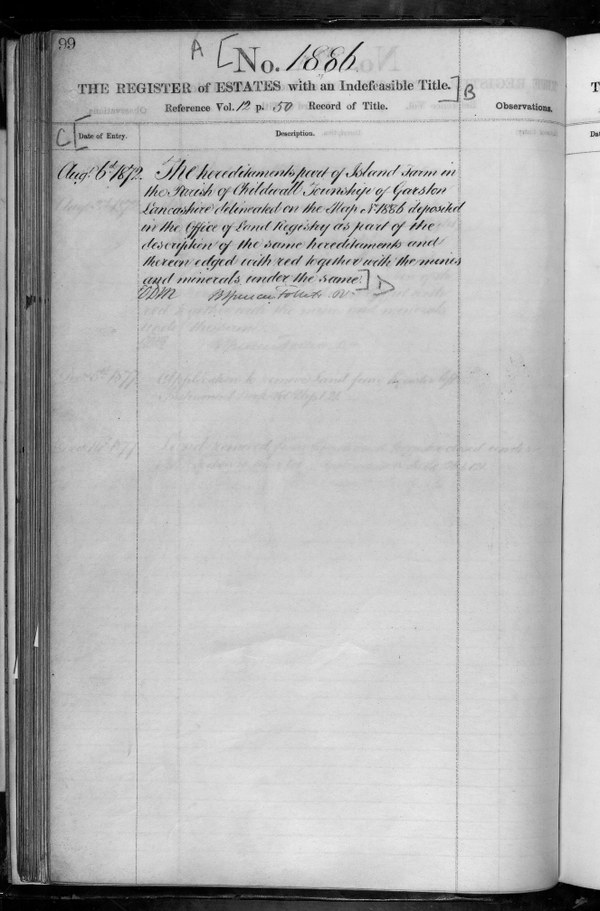 99
A [ No. 1886
THE REGISTER of ESTATES with an Indefeasible Title. ] B
Reference Vol. 12 p. 50 Record of Title.
Observations.
C [ Date of Entry.
Description.
Augt 6th 1872. The hereditaments part of Island Farm in
the Parish of Childwall Township of Garston
Lancashire delineated on the Map No 1886 deposited
in the Office of Land Registry as part of the
description of the same hereditaments and
thereon edged with red together with the mines
and minerals under the same ] D
Spencer Follett